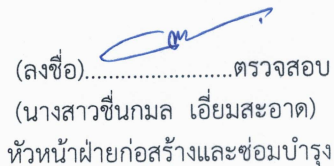 (ลงชื่อ)..............................ตรวจสอบ
(นางสาวชื่นกมล เอี่ยมสะอาด)
หัวหน้าฝ่ายก่อสร้างและซ่อมบำรุง